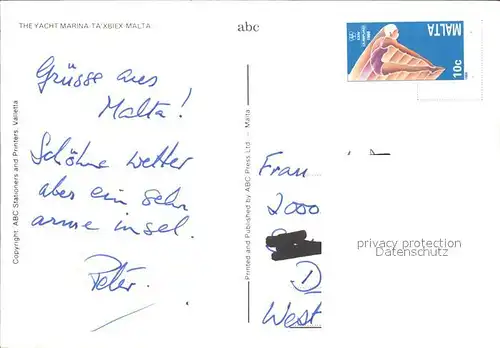 THE YACHT MARINA·TA'XBIEX·MALTA
abc
MALTA
10c
1988
Grüsse aus
Malta!
Schöhne wetter
aber ein sehr
arme insel.
Peter.
Copyright: ABC Stationers and Printers. Valletta
Printed and Published by ABC Press Ltd. — Malta
Frau
2000
D
West
privacy protection
Datenschutz